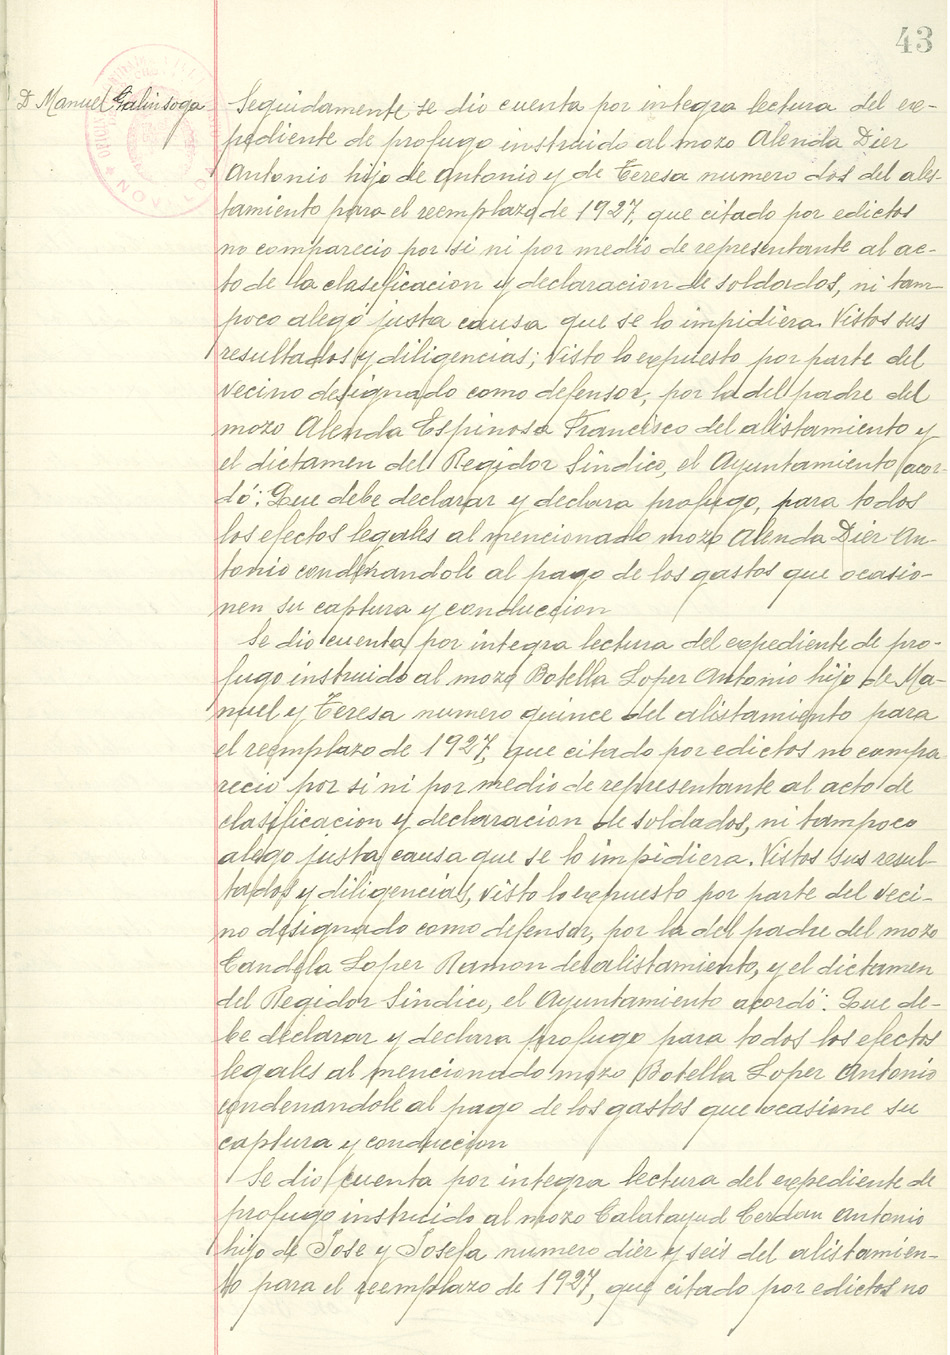 43
D Manuel Galinsoga
Seguidamente se dio cuenta por integra lectura del ex-
pediente de profugo instruido al mozo Alenda Dier
Antonio hijo de Antonio y de Teresa numero dos del alis-
tamiento para el reemplazo de 1927, que citado por edictos
no comparecio por si ni por medio de representante al ac-
to de la clasificacion y declaracion de soldados, ni tam-
poco alegó justa causa que se lo impidiera. Vistos sus
resultados y diligencias; Visto lo expuesto por parte del
vecino designado como defensor, por la del padre del
mozo Alenda Espinosa Francisco del alistamiento y
el dictamen del Regidor Sindico, el Ayuntamiento acor-
dó: Que debe declarar y declara profugo, para todos
los efectos legales al mencionado mozo Alenda Dier An-
tonio condenandole al pago de los gastos que ocasio-
nen su captura y conduccion
Se dio cuenta por integra lectura del expediente de pro-
fugo instruido al mozo Botella Loper Antonio hijo de Ma-
nuel y Teresa numero quince del alistamiento para
el reemplazo de 1927, que citado por edictos no compa-
recio por si ni por medio de representante al acto de
clasificacion y declaracion de soldados, ni tampoco
alego justa causa que se lo impidiera. Vistos sus resul-
tados y diligencias, visto lo expuesto por parte del veci-
no designado como defensor, por la del padre del mozo
Candela Loper Ramon del alistamiento, y el dictamen
del Regidor Sindico, el Ayuntamiento acordó: Que de-
be declarar y declara profugo para todos los efectos
legales al mencionado mozo Botella Loper Antonio
condenandole al pago de los gastos que ocasione su
captura y conduccion
Se dio cuenta por integra lectura del expediente de
profugo instruido al mozo Calatayud Cerdan Antonio
hijo de Jose y Josefa numero dier y seis del alistamien-
to para el reemplazo de 1927, que citado por edictos no